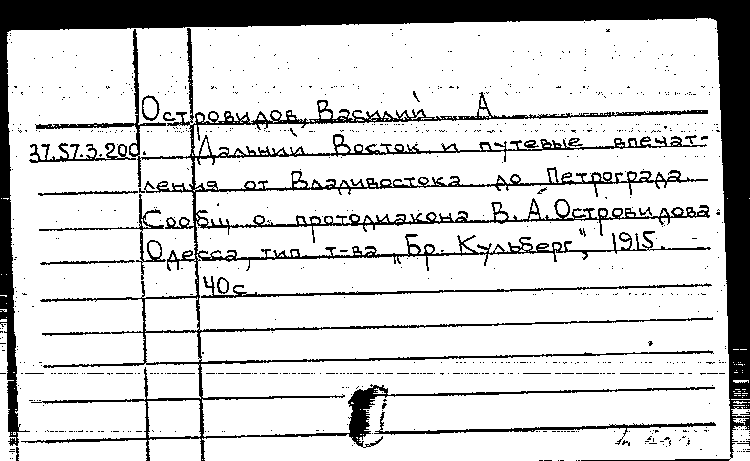 Островидов, Василий А
37.57.3.200. Дальний Восток и путевые впечат-
ления от Владивостока до Петрограда.
Сообщ. о. протодиакона В. А. Островидова.
Одесса, тип. т-ва „Бр. Кульберг“, 1915.
40 с.